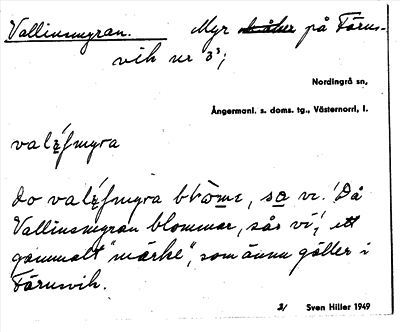 Vallinsmyran. Myr på Förns-
vik nr 3³;
Nordingrå sn,
Ångermanl. s. doms. tg., Västernorrl. l.
do myra blöme, sa vi.! Då
Vallinsmyran blommar, sår vi!, ett
gammalt "märke", som ännu gäller i
Förnsvik.
2/ Sven Hiller 1949